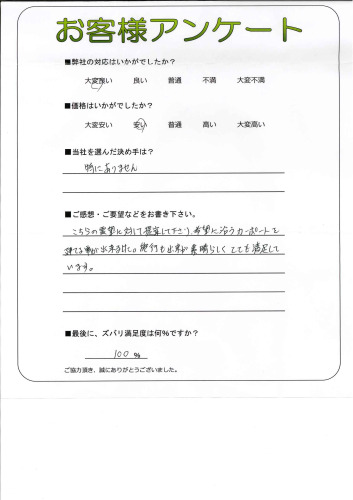 お客様アンケート
■弊社の対応はいかがでしたか?
大変良い 良い 普通 不満 大変不満
■価格はいかがでしたか?
大変安い 安い 普通 高い 大変高い
■当社を選んだ決め手は?
特にありません
■ご感想・ご要望などをお書き下さい。
こちらの要望に対して提案して下さり、希望に沿うカーポートを
建てる事が出来ました。施行も出来が素晴らしくとても満足して
います。
■最後に、ズバリ満足度は何%ですか?
100 %
ご協力頂き、誠にありがとうございました。